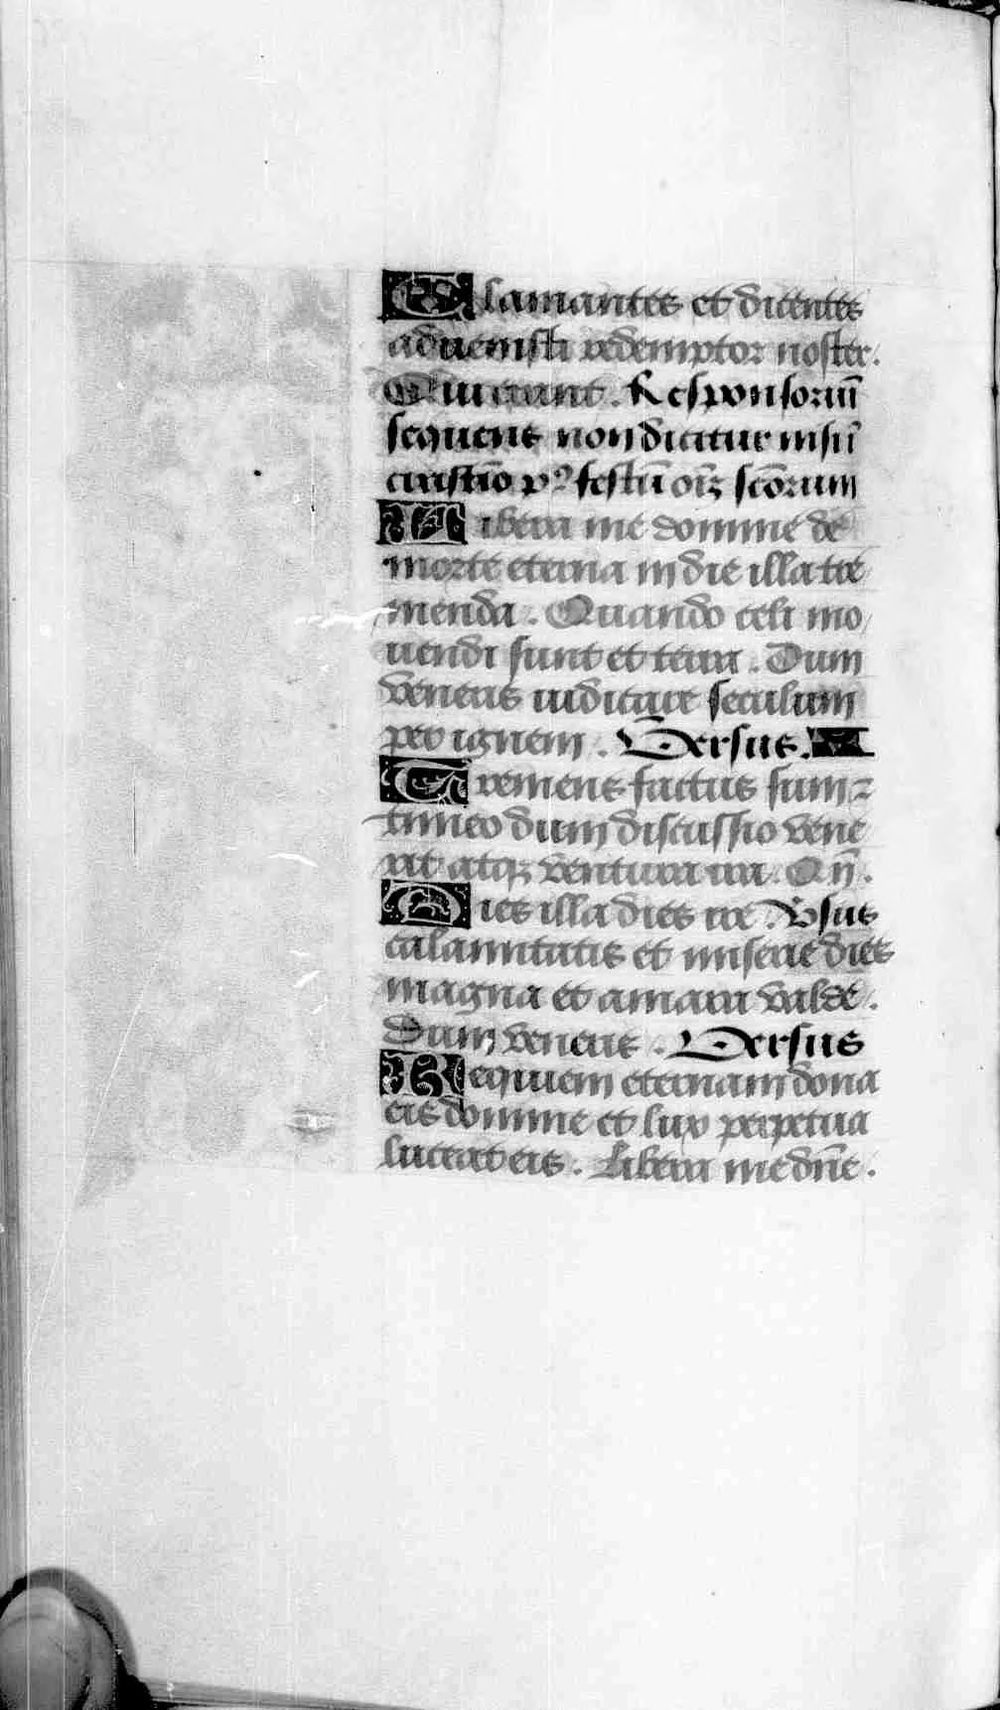 Clamantes et dicentes
advenisti redemptor noster.
Qui erant. Responsoriū
sequens non dicitur nisi ī
crastīo pꝰ festū oīꝫ scōrum
Libera me domine de
morte eterna in die illa tre
menda. Quando celi mo
vendi sunt et terra. Dum
veneris iudicare seculum
per ignem. Versus.
Tremens factus sum ⁊
timeo dum discussio vene
rit atqꝫ ventura ira. Qn̄.
Dies illa dies ire Vsus
calamitatis et miserie dies
magna et amara valde.
Dum veneris. Versus
Requiem eternam dona
eis domine et lux perpetua
luceat eis. Libera me dn̄e.